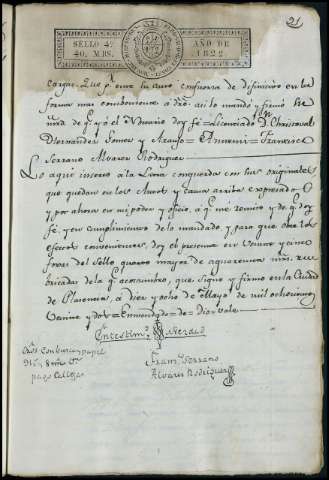 21
SELLO 4º
40, MRS.
AÑO DE
1822
cargas. Que pr. este su auto con fuerza de difinitivo en la
forma mas combeniente a dro. asi lo mando y firmó
de qe. yo el Esno. doy fé = Licenciado Dn. Christoval
Hernandez Gomez y Araujo = Antemi = Francisco
Serrano Alvarez Rodriguez
Lo aqui inserto a la Letra concuerda con sus originales
que quedan en los Autos y causa arriba expresada
y por ahora en mi poder y oficio, a qe. me remito y de qe. doy
fé, y en cumplimiento de lo mandado, y para que obre los
efectos convenientes, doy el presente en veinte y cinco
foxas del sello quarto mayor de a quarenta mrs. ru-
bricadas de la qe. acostumbro, que signo y firmo en la Ciudad
de Plasencia, a diez y ocho de Mayo de mil ochocientos
Veinte y dos = Enmendado = do = Vale
Entestimo. de Verdad
Franco. Serrano
Alvarez Rodriguez
Dros. con busca y papel
pago Callejas